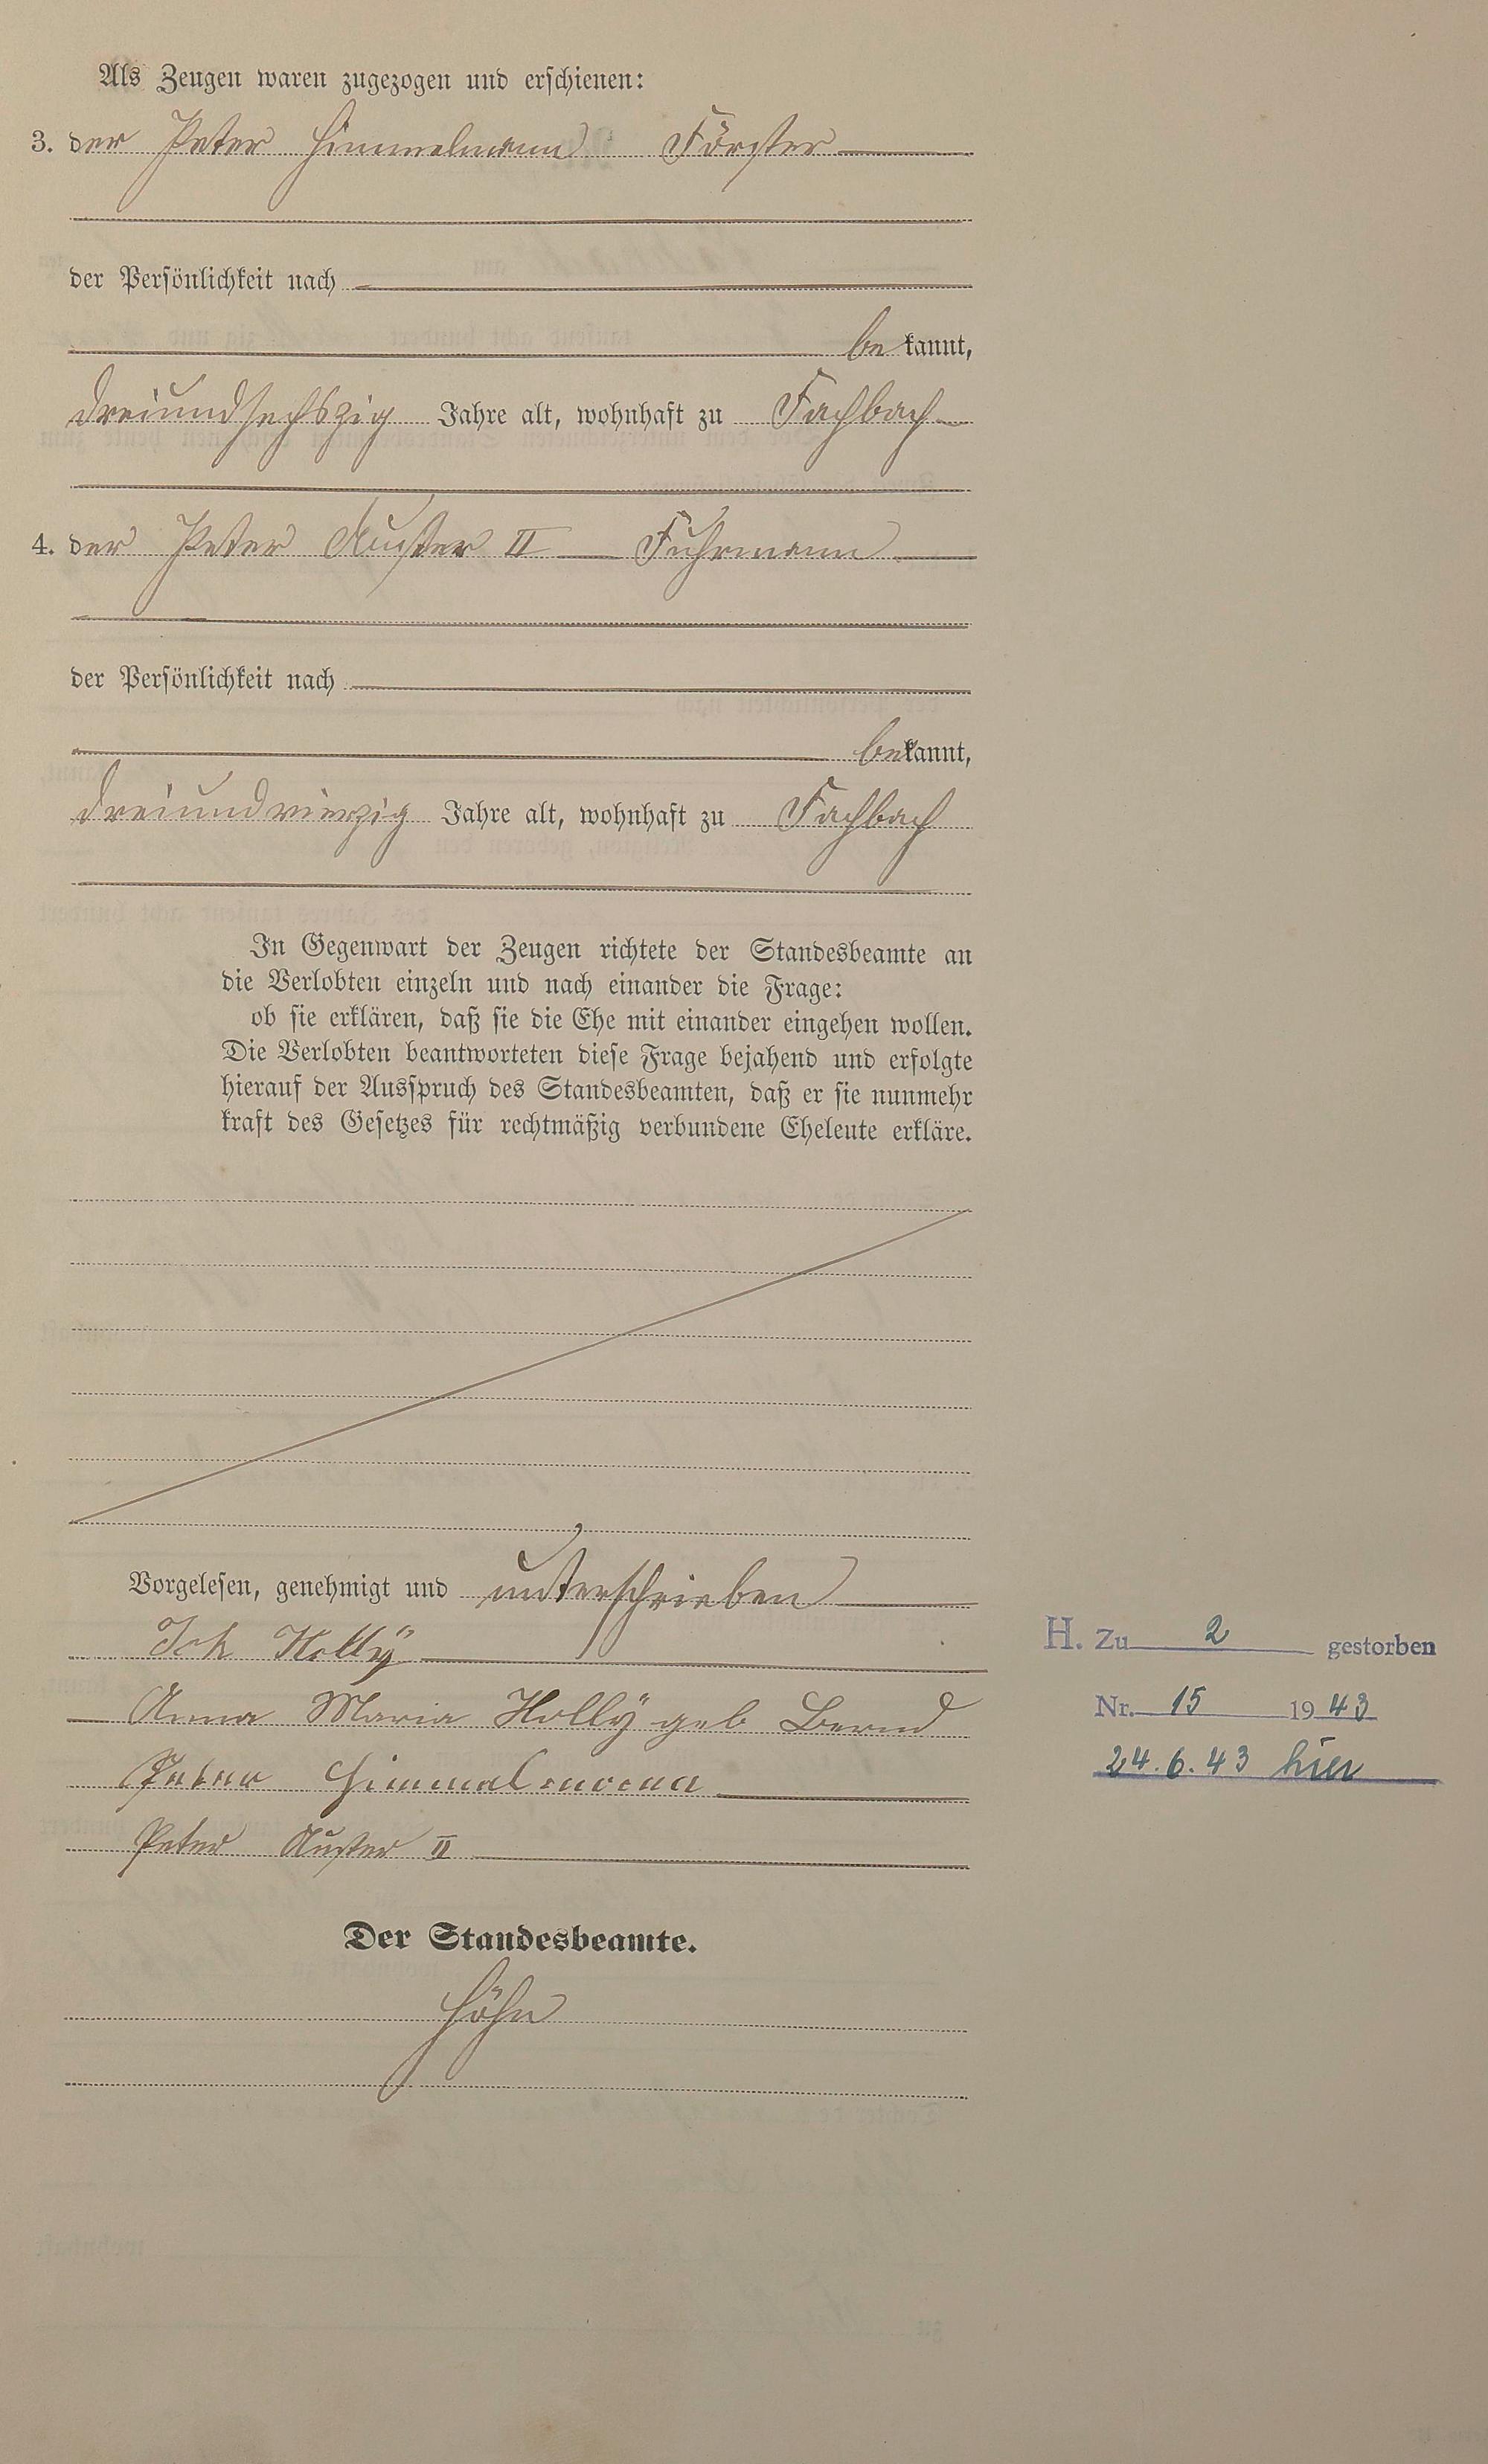 Als Zeugen waren zugezogen und erschienen:
3. der Peter Himmelmann Förster
der Persönlichkeit nach
bekannt,
dreiundsechszig Jahre alt, wohnhaft zu Fachbach
4. der Peter Auster II Fuhrmann
der Persönlichkeit nach
bekannt,
dreiundvierzig Jahre alt, wohnhaft zu Fachbach
In Gegenwart der Zeugen richtete der Standesbeamte an
die Verlobten einzeln und nach einander die Frage:
ob sie erklären, daß sie die Ehe mit einander eingehen wollen.
Die Verlobten beantworteten diese Frage bejahend und erfolgte
hierauf der Ausspruch des Standesbeamten, daß er sie nunmehr
kraft des Gesetzes für rechtmäßig verbundene Eheleute erkläre.
Vorgelesen, genehmigt und unterschrieben
Joh Holly
Anna Maria Holly geb Bernd
Peter Himmelmann
Peter Auster II
Der Standesbeamte.
Höhn
H. Zu 2 gestorben
Nr. 15 1943
24.6.43 hier